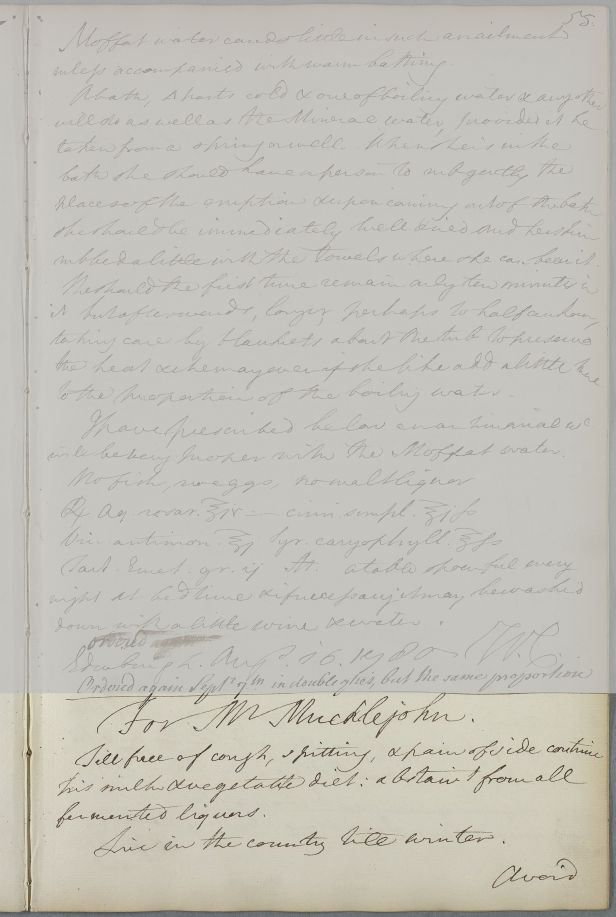 55.
Moffat water can do little in such an ailment
unless accompanied with warm bathing.
A bath, 2 parts cold & one of boiling water & any other
will do as well as the Mineral water, provided it be
taken from a spring or well. When she is in the
bath she should have a person to rub gently the
places of the eruption & upon coming out of the bath
she should be immediately well dried and her skin
rubbed a little with the towels where she can bear it.
She should the first time remain only ten minutes in
it but afterwards, longer, perhaps to half an hour,
taking care by blankets about the tub to preserve
the heat & she may even if she like add a little more
to the proportion of the boiling water.
I have prescribed below an antimonial wc
will be very proper with the Moffat water.
No fish, no eggs, no malt liquor
℞ Aq. rosar. ℥iv — cinn. simpl. ℥jfs
Vin. antimon. ℥j Syr. caryophyll. ℥fs
Tart. Emet. gr. ij M. a table spoonful every
night at bed time & if necessary it may be washed
down with a little wine & water.
Edinburgh. Augt. 16. 1780 W.C.
Ordered again Septr 9th in double glies, but the same proportion
For Mr Mucklejohn.
Till free of cough, spitting, & pain of side continue
his milk & vegetable diet: abstain from all
fermented liquors.
Live in the country till winter.
Avoid